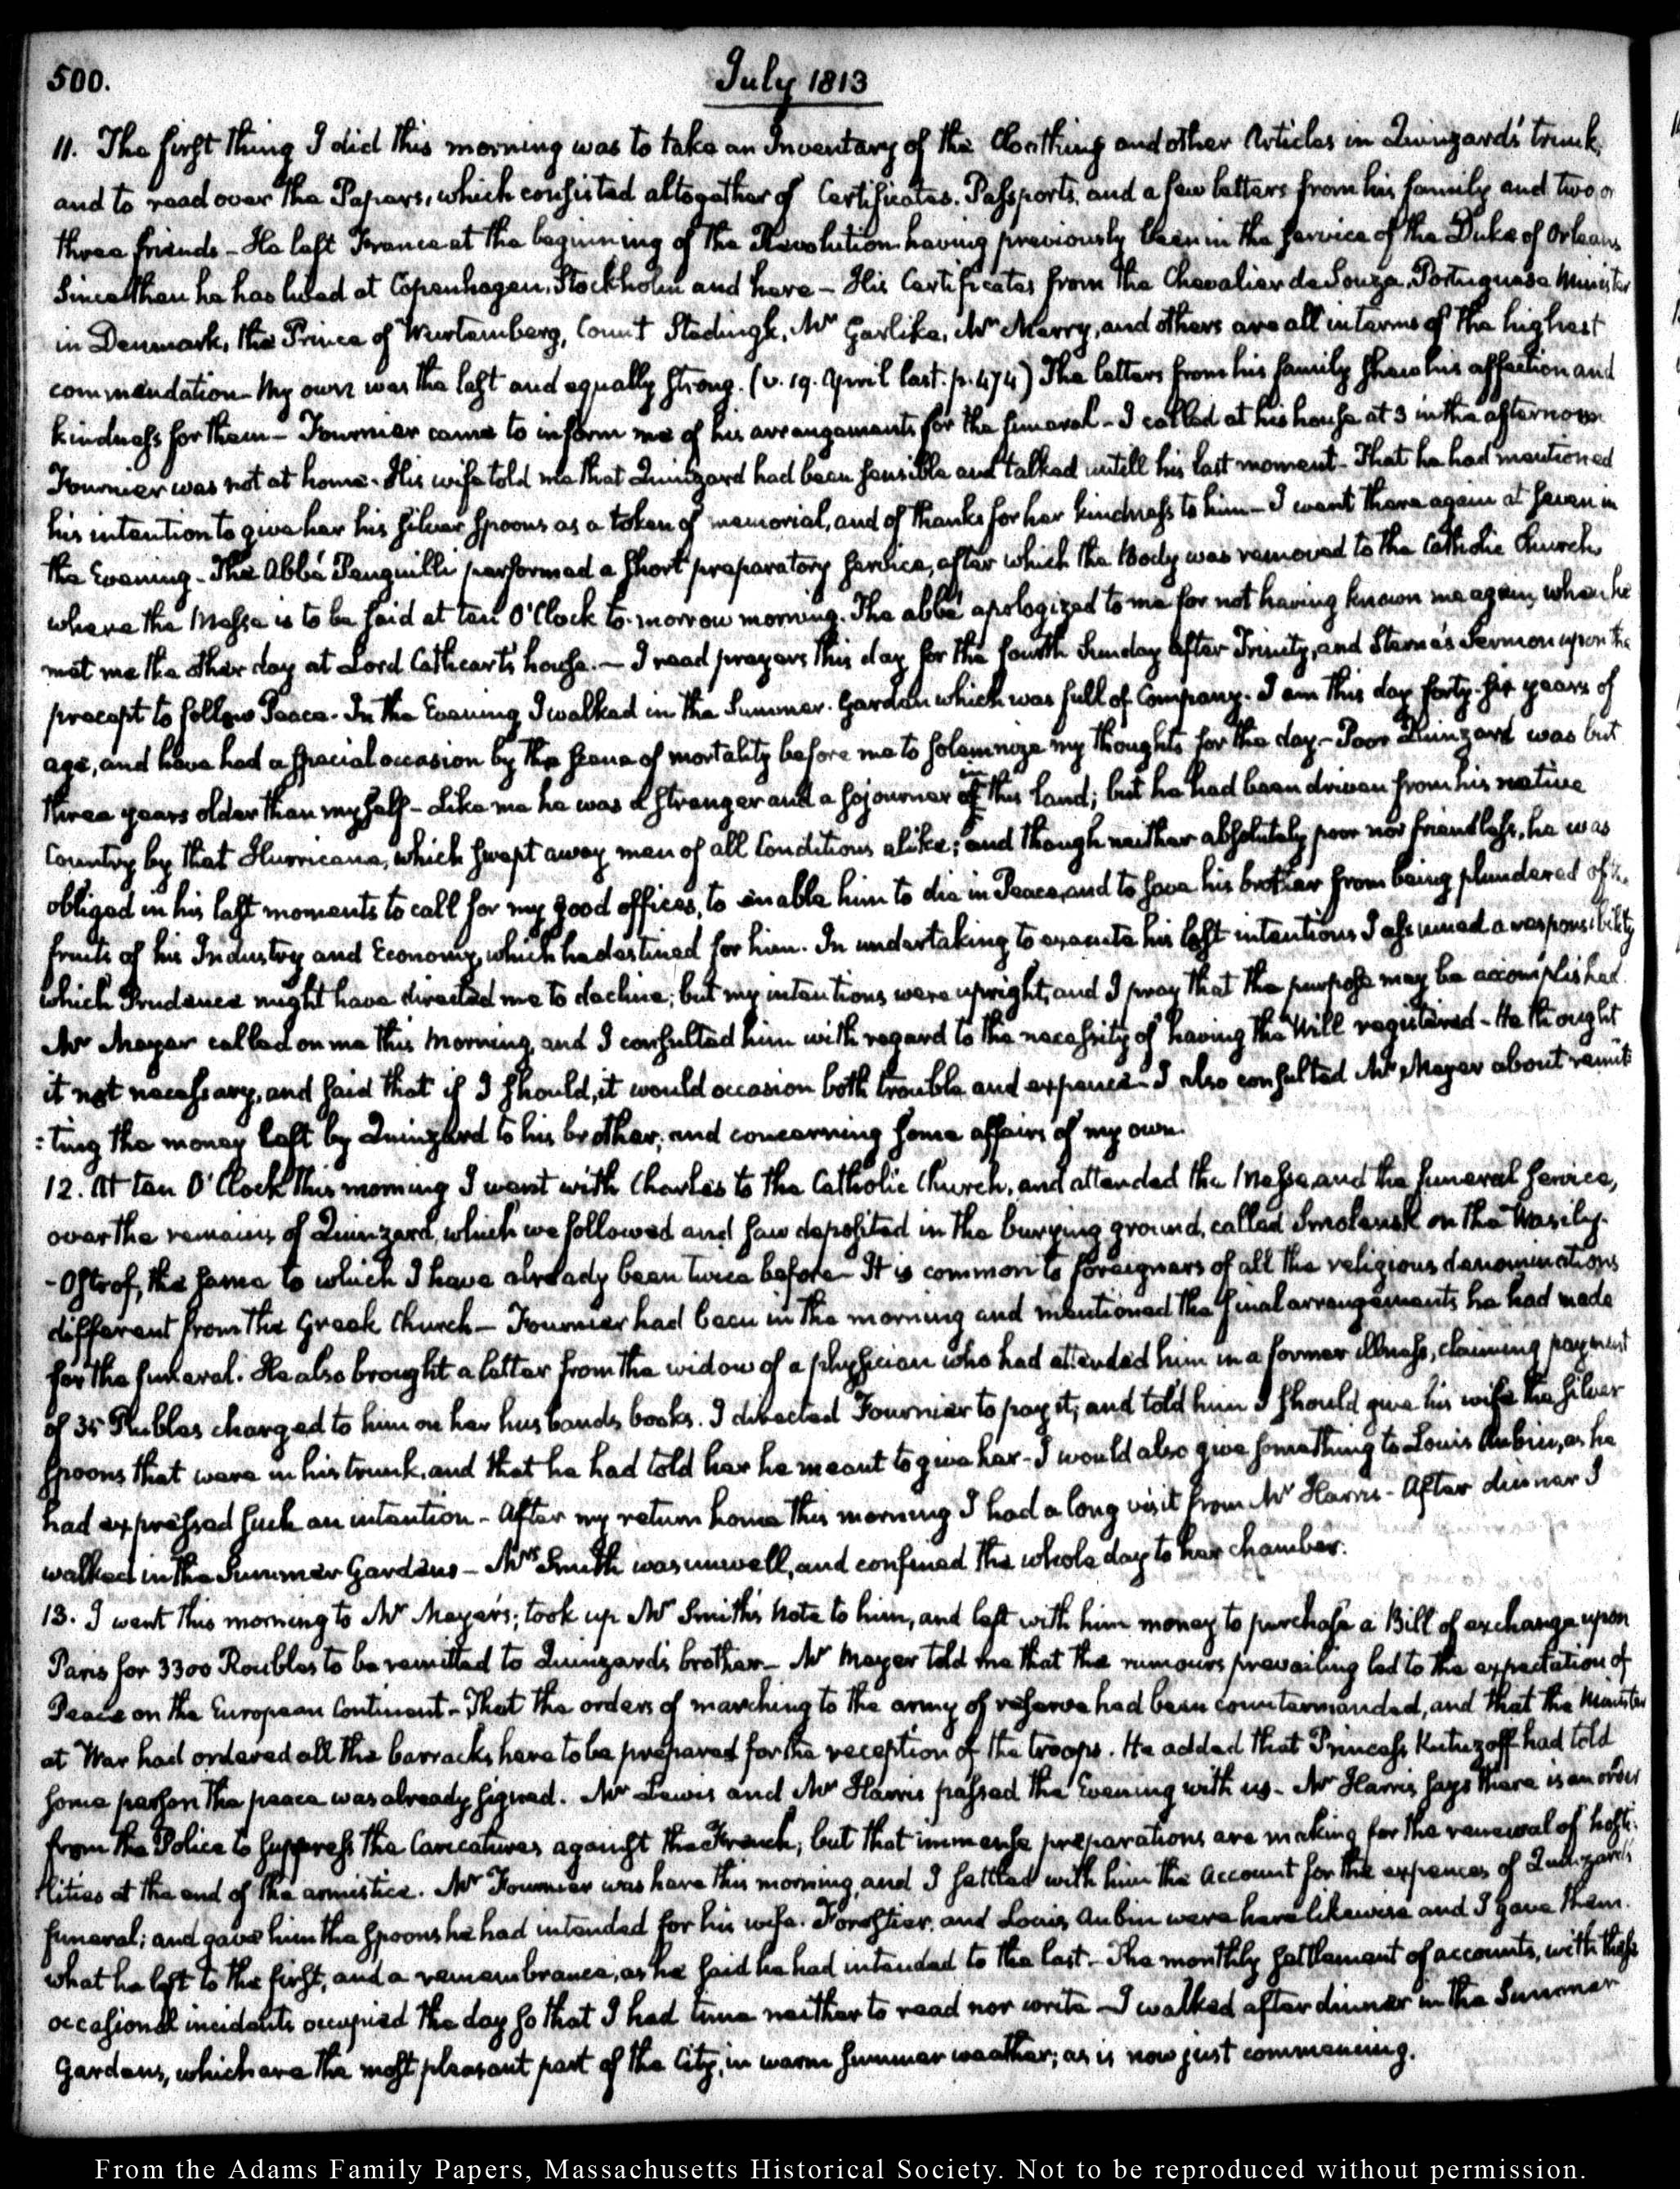 500.
July 1813
11. The first thing I did this morning was to take an Inventary of the Cloathing and other Articles in Quinzard's trunk,
and to read over the Papers, which consisted altogether of Certificates. Passports, and a few letters from his family and two or
three friends – He left France at the beginning of the Revolution having previously been in the service of the Duke of Orleans
Since then he has lived at Copenhagen, Stockholm and here – His Certificates from the Chevalier de Souza, Portuguese Minister
in Denmark, the Prince of Wurtemberg, Count Stedingk, Mr Garlike, Mr Merry, and others are all in terms of the highest
commendation – My own was the last and equally strong. (v. 19. April last. p. 474) The letters from his family shew his affection and
kindness for them – Fournier came to inform me of his arrangements for the funeral – I called at his house at 3 in the afternoon
Fournier was not at home – His wife told me that Quinzard had been sensible and talked untill his last moment – That he had mentioned
his intention to give her his silver spoons as a token of memorial, and of thanks for her kindness to him – I went there again at seven in
the Evening – The Abbé Penguilli performed a short preparatory service, after which the Body was removed to the Catholic Church
where the Messe is to be said at ten O'Clock to-morrow morning. The abbé apologized to me for not having known me again, when he
met me the other day at Lord Cathcart's house. – I read prayers this day for the fourth Sunday after Trinity, and Sterne's Sermon upon the
precept to follow Peace. In the Evening I walked in the Summer. Garden which was full of Company. I am this day forty-six years of
age, and have had a special occasion by the scene of mortality before me to solemnize my thoughts for the day – Poor Quinzard was but
three years older than myself – Like me he was a stranger and a sojourner in this land; but he had been driven from his native
Country by that Hurricane, which swept away men of all Conditions alike; and though neither absolutely poor nor friendless, he was
obliged in his last moments to call for my good offices, to enable him to die in Peace, and to save his brother from being plundered of the
fruits of his Industry and Economy, which he destined for him. In undertaking to execute his last intentions I assumed a responsibility
which Prudence might have directed me to decline; but my intentions were upright, and I pray that the purpose may be accomplished.
Mr Meyer called on me this morning, and I consulted him with regard to the necessity of having the Will registered – He thought
it not necessary, and said that if I should, it would occasion both trouble and expence – I also consulted Mr Meyer about remit
:ting the money left by Quinzard to his brother; and concerning some affairs of my own.
12. At ten O'Clock this morning I went with Charles to the Catholic Church, and attended the Messe, and the funeral service,
over the remains of Quinzard, which we followed and saw deposited in the burying ground, called Smolensk on the Wasily-
-Ostrof, the same to which I have already been twice before – It is common to foreigners of all the religious denominations
different from the Greek Church – Fournier had been in the morning and mentioned the final arrangements he had made
for the funeral. He also brought a letter from the widow of a physician who had attended him in a former illness, claiming payment
of 35 Rubles charged to him on her husbands books. I directed Fournier to pay it; and told him I should give his wife the silver
spoons that were in his trunk, and that he had told her he meant to give her – I would also give something to Louis Aubin, as he
had expressed such an intention – After my return home this morning I had a long visit from Mr Harris – After dinner I
walked in the Summer Gardens – Mrs Smith was unwell, and confined the whole day to her chamber.
13. I went this morning to Mr Meyer's; took up Mr Smith's Note to him, and left with him money to purchase a Bill of exchange upon
Paris for 3300 Roubles to be remitted to Quinzard's brother – Mr Meyer told me that the rumours prevailing led to the expectation of
Peace on the European Continent – That the orders of marching to the army of reserve had been countermanded, and that the Minister
at War had ordered all the barracks here to be prepared for the reception of the troops. He added that Princess Kutuzoff had told
some person the peace was already signed. Mr Lewis and Mr Harris passed the Evening with us – Mr Harris says there is an order
from the Police to suppress the Caricatures against the French; but that immense preparations are making for the renewal of hosti-
lities at the end of the armistice. Mr Fournier was here this morning, and I settled with him the Account for the expences of Quinzard's
funeral; and gave him the spoons he had intended for his wife. Forestier, and Louis Aubin were here likewise and I gave them
what he left to the first, and a remembrance, as he said he had intended to the last – The monthly settlement of accounts, with these
occasional incidents occupied the day so that I had time neither to read nor write – I walked after dinner in the Summer
Gardens, which are the most pleasant part of the City, in warm summer weather; as is now just commencing.
From the Adams Family Papers, Massachusetts Historical Society. Not to be reproduced without permission.